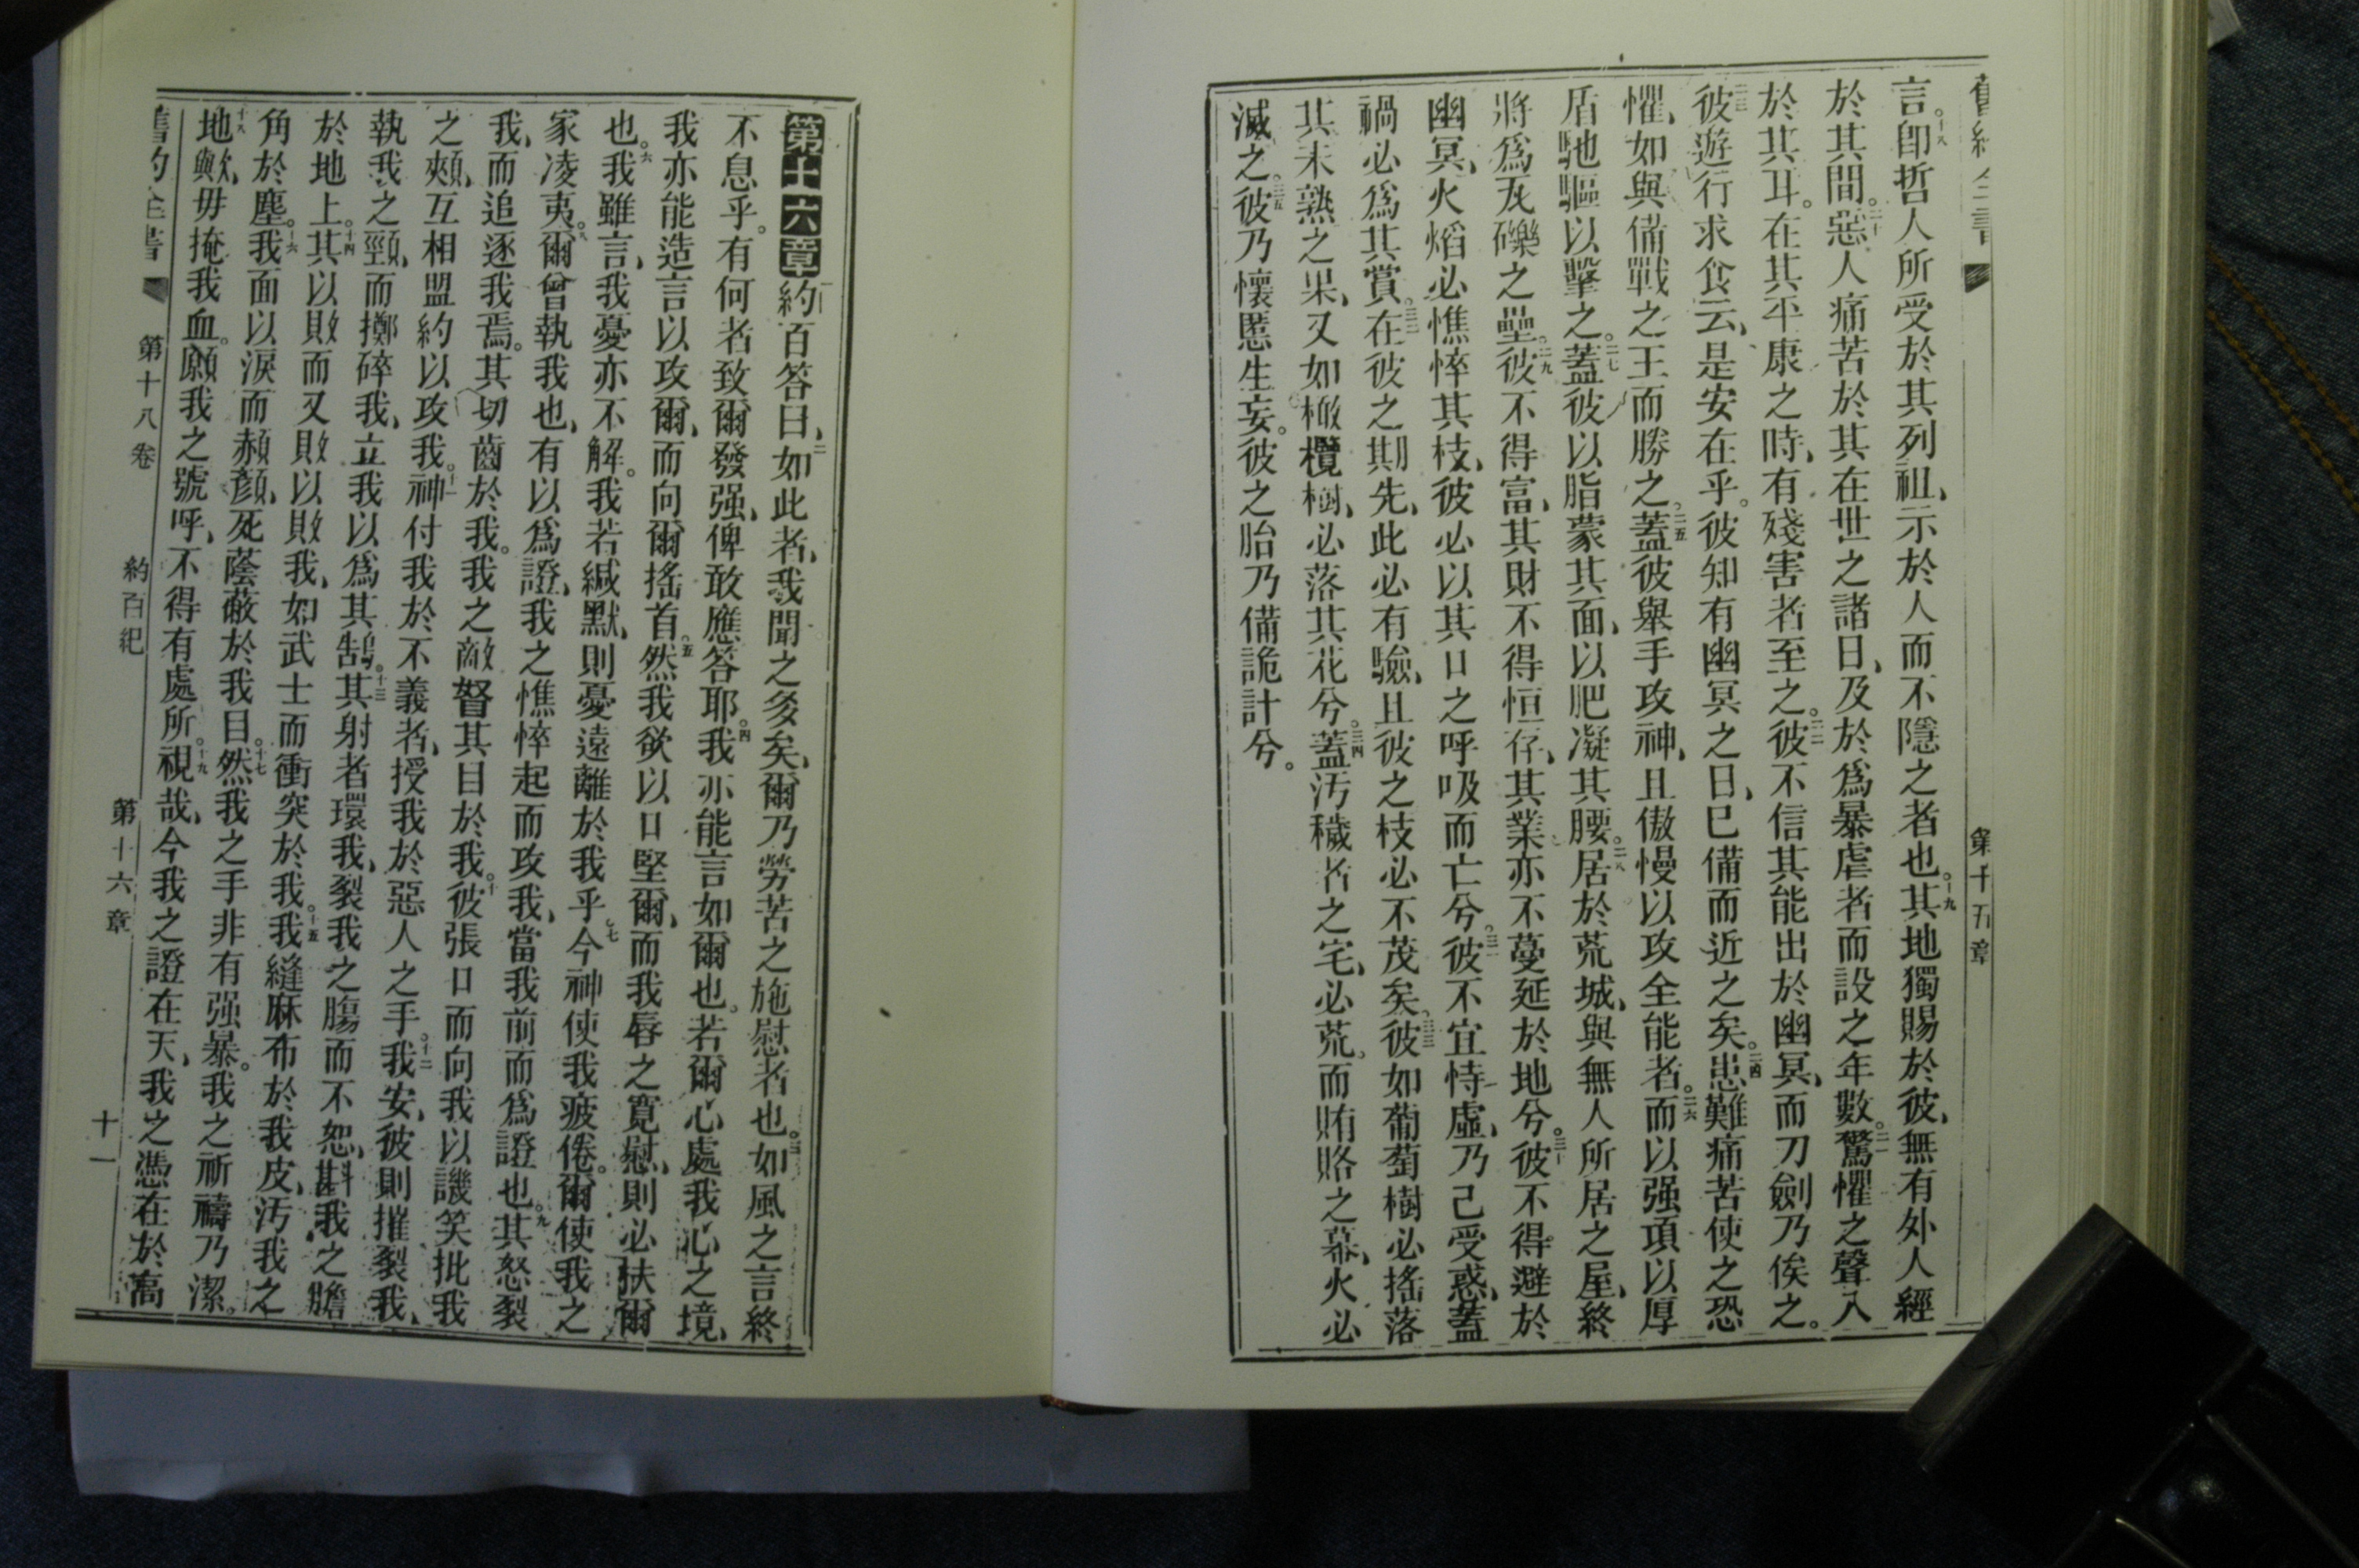 舊約全書 第十五章
言。十八即哲人所受於其列祖、示於人而不隱之者也。十九其地獨賜於彼、無有外人經
於其間。二十惡人痛苦於其在世之諸日、及於爲暴虐者而設之年數。二一驚懼之聲入
於其耳。在其平康之時、有殘害者至之。二二彼不信其能出於幽冥、而刀劍乃俟之。
二三彼遊行求食云、是安在乎。彼知有幽冥之日、已備而近之矣。二四患難痛苦使之恐
懼、如與備戰之王而勝之。二五蓋彼舉手攻神、且傲慢以攻全能者。二六而以强項以厚
盾馳驅以擊之。二七蓋彼以脂蒙其面、以肥凝其腰。二八居於荒城、與無人所居之屋、終
將爲瓦礫之壘。二九彼不得富、其財不得恒存、其業亦不蔓延於地兮。三十彼不得避於
幽冥、火熖必憔悴其枝、彼必以其口之呼吸而亡兮。三一彼不宜恃虛、乃己受惑、蓋
禍必爲其賞。三二在彼之期先、此必有驗、且彼之枝必不茂矣。三三彼如葡萄樹必搖落
其未熟之果、又如橄欖樹、必落其花兮。三四蓋污穢者之宅、必荒。而賄賂之幕、火必
滅之。三五彼乃懷慝生妄。彼之胎乃備詭計兮。
第十六章一約百答曰、二如此者、我聞之多矣、爾乃勞苦之施慰者也。三如風之言終
不息乎。有何者致爾發强、俾敢應答耶。四我亦能言如爾也。若爾心處我心之境、
我亦能造言以攻爾、而向爾搖首。五然我欲以口堅爾、而我唇之寬慰、則必扶爾
也。六我雖言、我憂亦不解。我若緘默、則憂遠離於我乎。七今神使我疲倦。爾使我之
家凌夷。八爾曾執我也、有以爲證、我之憔悴起而攻我、當我前而爲證也。九其怒裂
我、而追逐我焉。其切齒於我。我之敵督其目於我。十彼張口而向我以譏笑批我
之頰、互相盟約以攻我。十一神付我於不義者、授我於惡人之手。十二我安、彼則摧裂我、
執我之頸、而擲碎我、立我以爲其鵠。十三其射者環我、裂我之膓而不恕、斟我之膽
於地上。十四其以敗而又敗以敗我、如武士而衝突於我。十五我縫麻布於我皮、污我之
角於塵。十六我面以淚而赬顏、死蔭蔽於我目。十七然我之手非有强暴。我之祈禱乃潔。
十八地歟、毋掩我血。願我之號呼、不得有處所。十九視哉、今我之證在天、我之憑在於高
舊約全書 第十八卷 約百紀 第十六章 十一